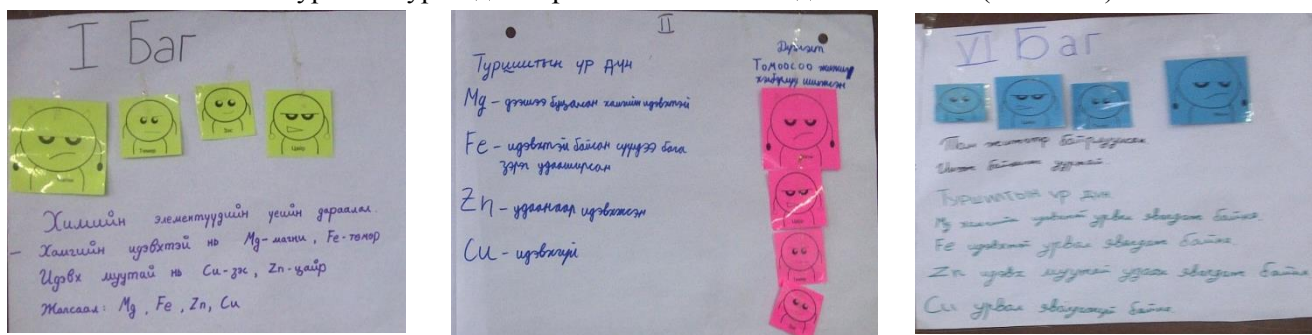 I Баг
Төмөр
Зэс
Цайр
Химийн элементүүдийн үеийн дараалал.
– Хамгийн идэвхтэй нь Mg-магни, Fe-төмөр
Идэвх муутай нь Cu-зэс, Zn-цайр
Жагсаал: Mg, Fe, Zn, Cu
II
Туршилтын үр дүн
Mg – дээшээ буцалсан хамгийн идэвхтэй
Fe – идэвхтэй байсан сүүлдээ бага
зэрэг удааширсан
Zn – удаанаар идэвхжсэн
Cu – идэвхгүй
Дүрслэл
Томоосоо жижиг
VI Баг
Том жижгээр
Туршилтын үр дүн
Mg хамгийн идэвхтэй урвал явагдаж байна.
Fe идэвхтэй урвал явагдаж байна.
Zn идэвх муутай удаан явагдаж байна
Cu урвал явагдахгүй байна.